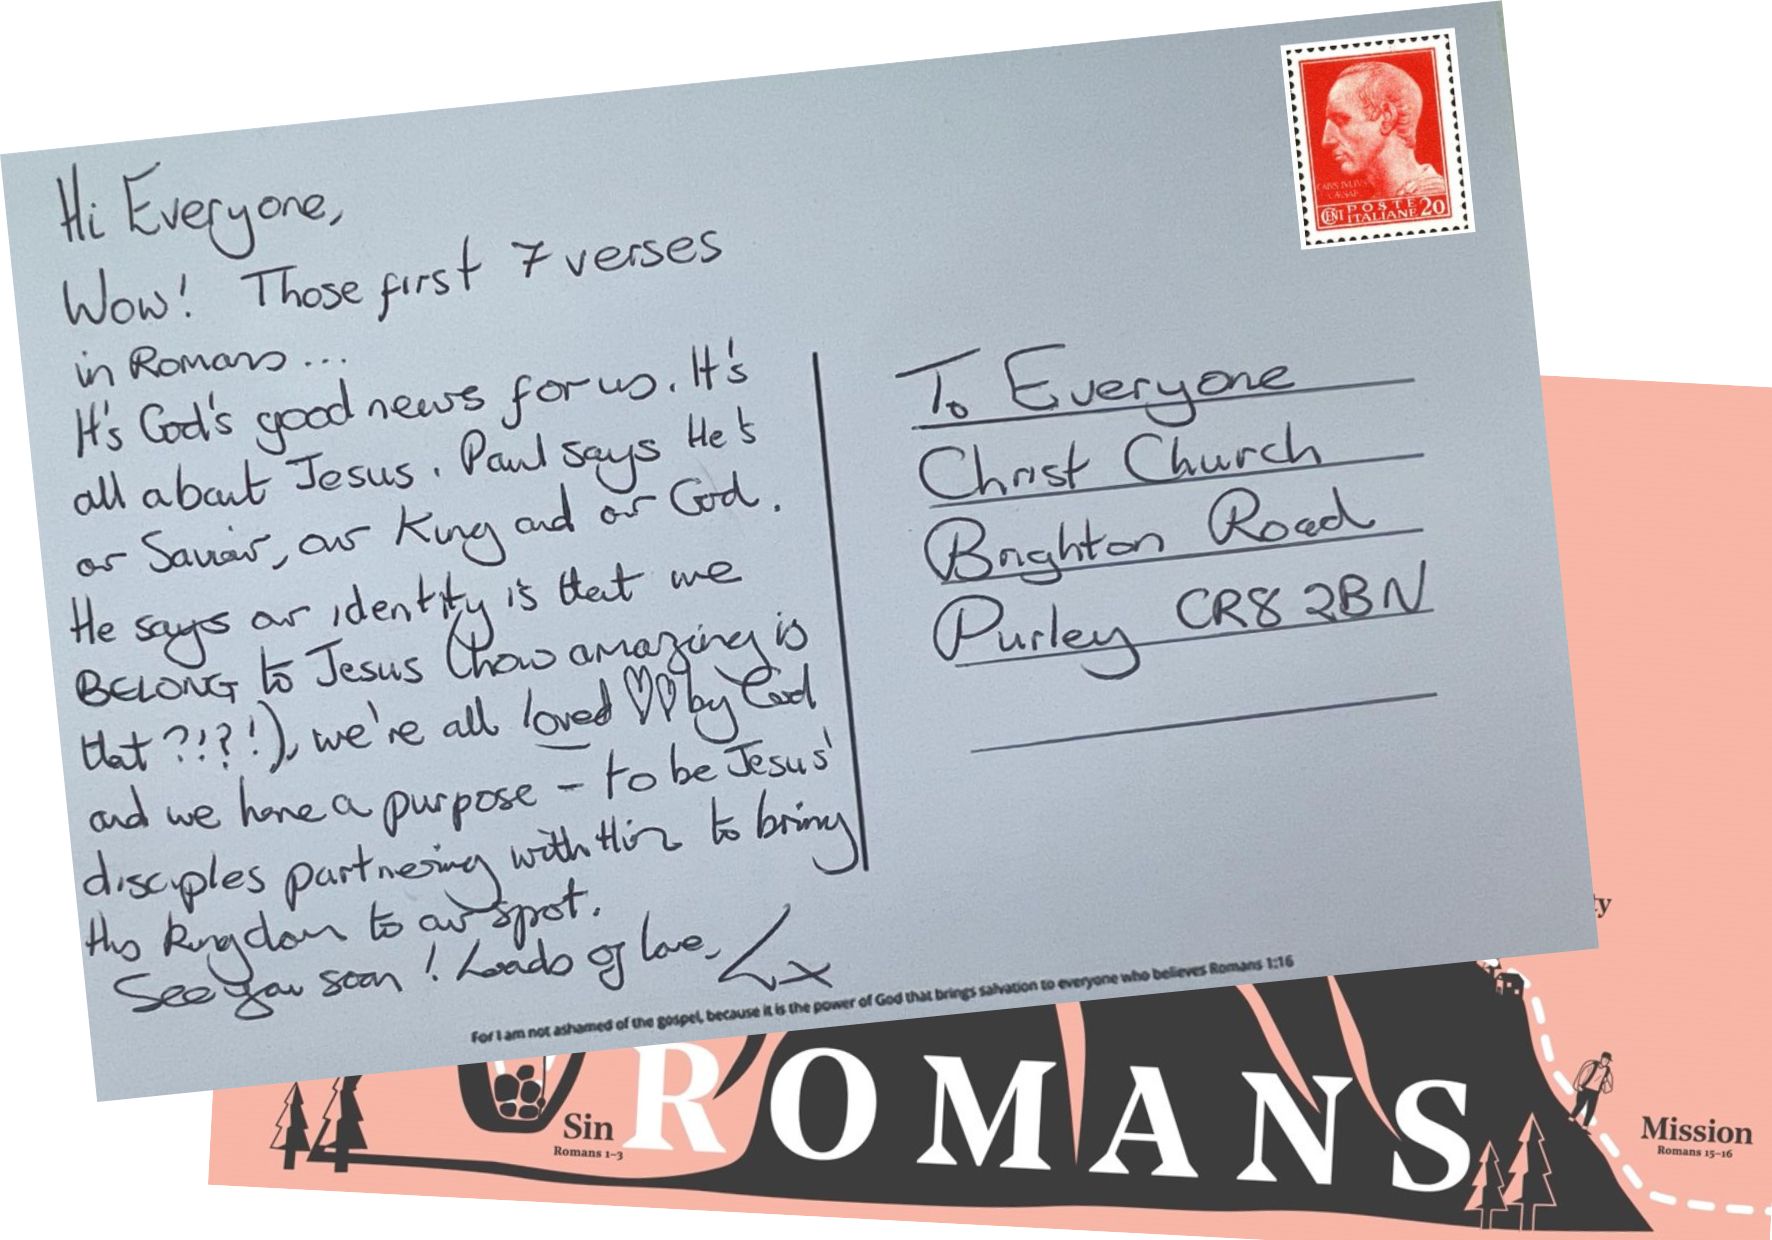 Hi Everyone,
Wow! Those first 7 verses
in Romans...
It's God's good news for us. It's
all about Jesus. Paul says He's
our Saviour, our King and our God.
He says our identity is that we
BELONG to Jesus (how amazing is
that?!?!), we're all loved ♡♡ by God
and we have a purpose – to be Jesus'
disciples partnering with Him to bring
His Kingdom to our spot.
See you soon! Loads of love,
Lx
To Everyone
Christ Church
Brighton Road
Purley CR8 2BN
CAIVS IVLIVS
CAESAR
CENT POSTE ITALIANE 20
For I am not ashamed of the gospel, because it is the power of God that brings salvation to everyone who believes Romans 1:16
ROMANS
Sin
Romans 1–3
Mission
Romans 15–16